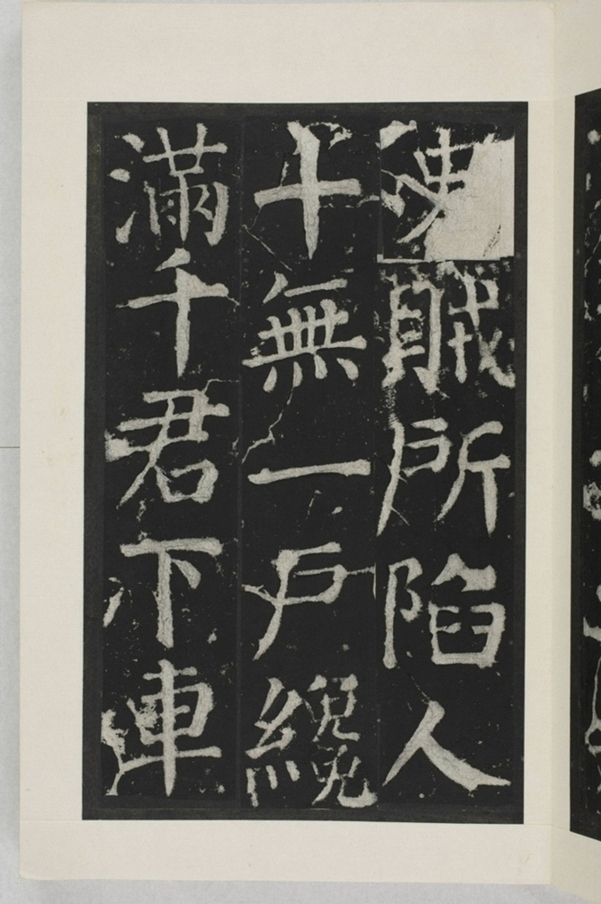 賊所陷人
十無一戶纔
滿千君下車